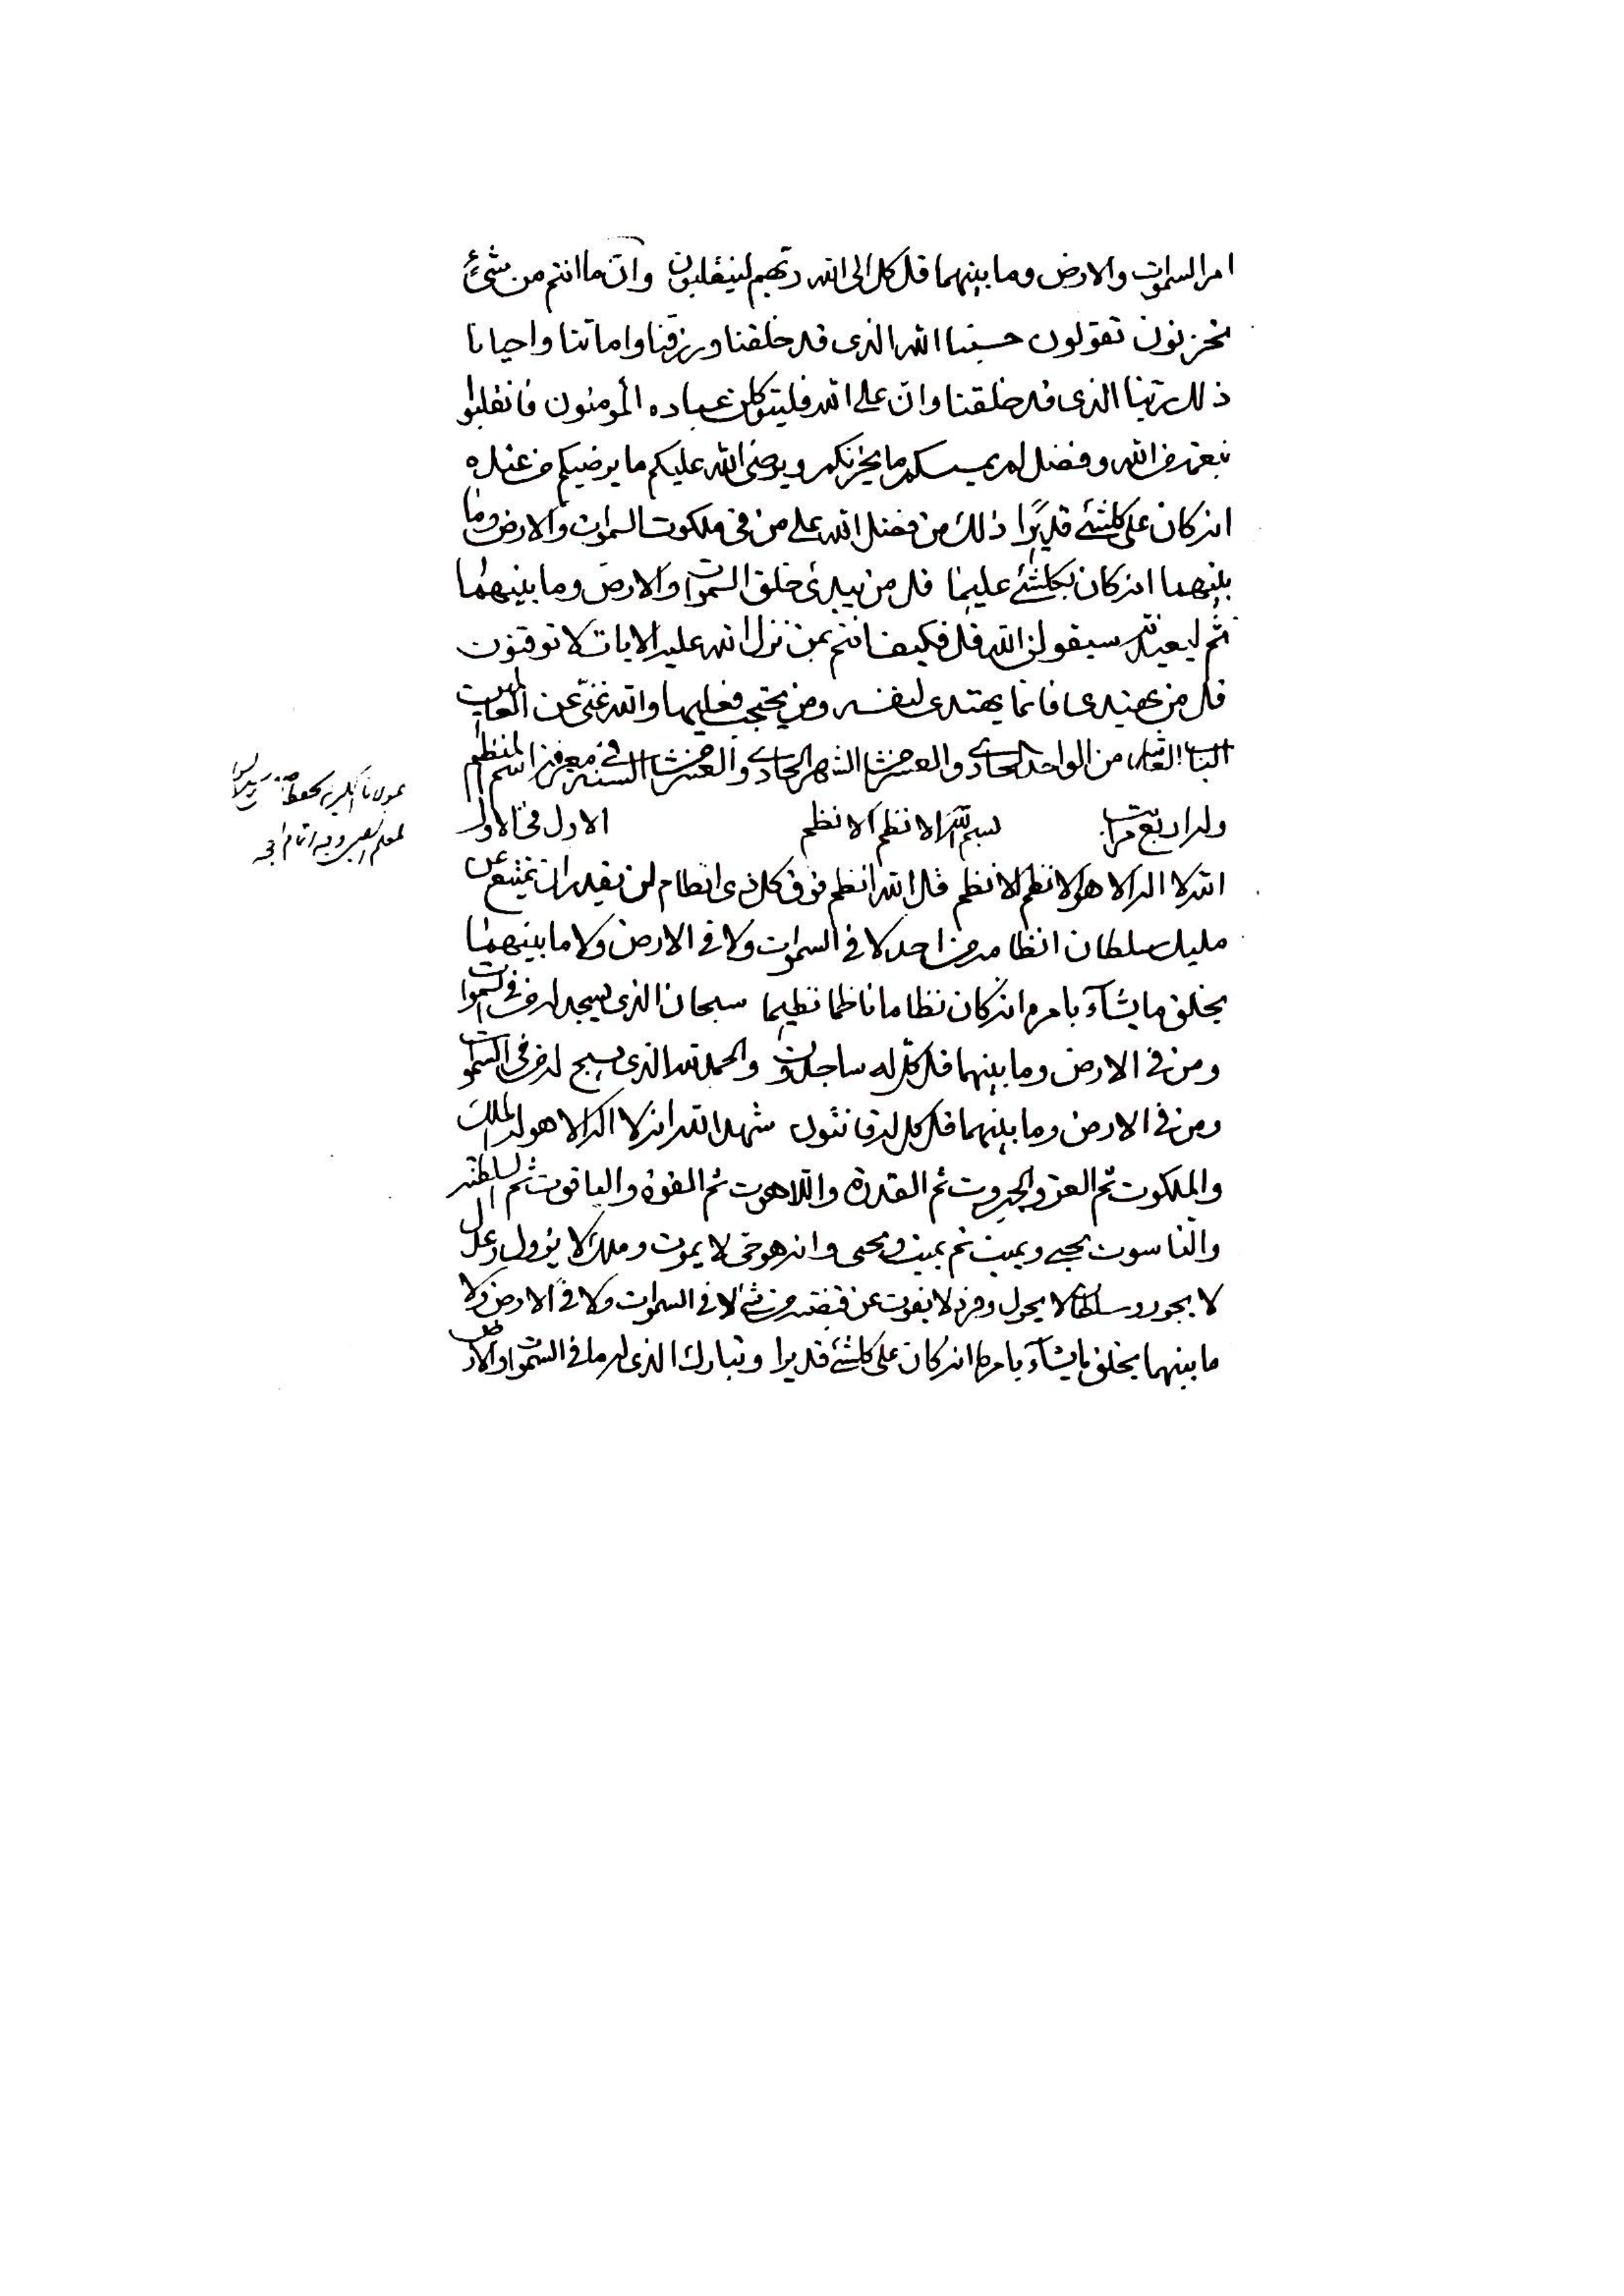 امر السموات والارض وما بينهما قل كل الى الله ربهم لينقلبون وان ما انتم من شئ
تحزنون تقولون حسبنا الله الذى قد خلقنا ورزقنا واماتنا واحيانا
ذلك ربنا الذى قد خلقنا وان على الله فليتوكلن عباده المؤمنون فانقلبوا
بنعمة من الله وفضل لم يمسسكم ما يحزنكم ويرضى الله عليكم ما يرضيكم من عنده
انه كان على كلشئ قديرا ذلك من فضل الله على من فى ملكوت السموات والارض وما
بينهما انه كان بكلشئ عليما قل من يبدئ خلق السموات والارض وما بينهما
ثم ليعيده سيقولن الله قل فكيف انتم بمن نزل الله عليه الايات لا توقنون
قل من يهتدى فانما يهتدى لنفسه ومن يحتجب فعليها والله غنى عن العالمين
الباب العاشر من الواحد الحادى والعشر من الشهر الحادى والعشر من السنة فى معرفة اسم المنظم
وله اربع مراتب بسم الله الانظم الانظم الاول فى الاول
الله لا اله الا هو الانظم الانظم قل الله انظم فوق كل ذى انظام لن يقدر ان يمتنع عن
مليك سلطان انظامه من احد لا فى السموات ولا فى الارض ولا ما بينهما
يخلق ما يشآء بامره انه كان نظاما ناظما نظيما سبحان الذى يسجد له من فى السموات
ومن فى الارض وما بينهما قل كل له ساجدون والحمد لله الذى يسبح له من فى السموات
ومن فى الارض وما بينهما قل كل له قانتون شهد الله انه لا اله الا هو له الملك
والملكوت ثم العز والجبروت ثم القدرة واللاهوت ثم القوة والياقوت ثم السلطنة
والناسوت يحيى ويميت ثم يميت ويحيى وانه هو حى لا يموت وملك لا يزول وعدل
لا يجور وسلطان لا يحول وفرد لا يفوت عن قبضته من شئ لا فى السموات ولا فى الارض ولا
ما بينهما يخلق ما يشآء بامره انه كان على كلشئ قديرا وتبارك الذى له ما فى السموات والارض